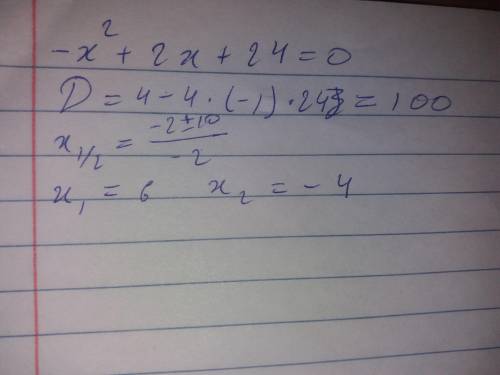 -x² + 2x + 24 = 0
D = 4 - 4 · (-1) · 24 = 100
x₁/₂ = (-2 ± 10)/(-2)
x₁ = 6 x₂ = -4